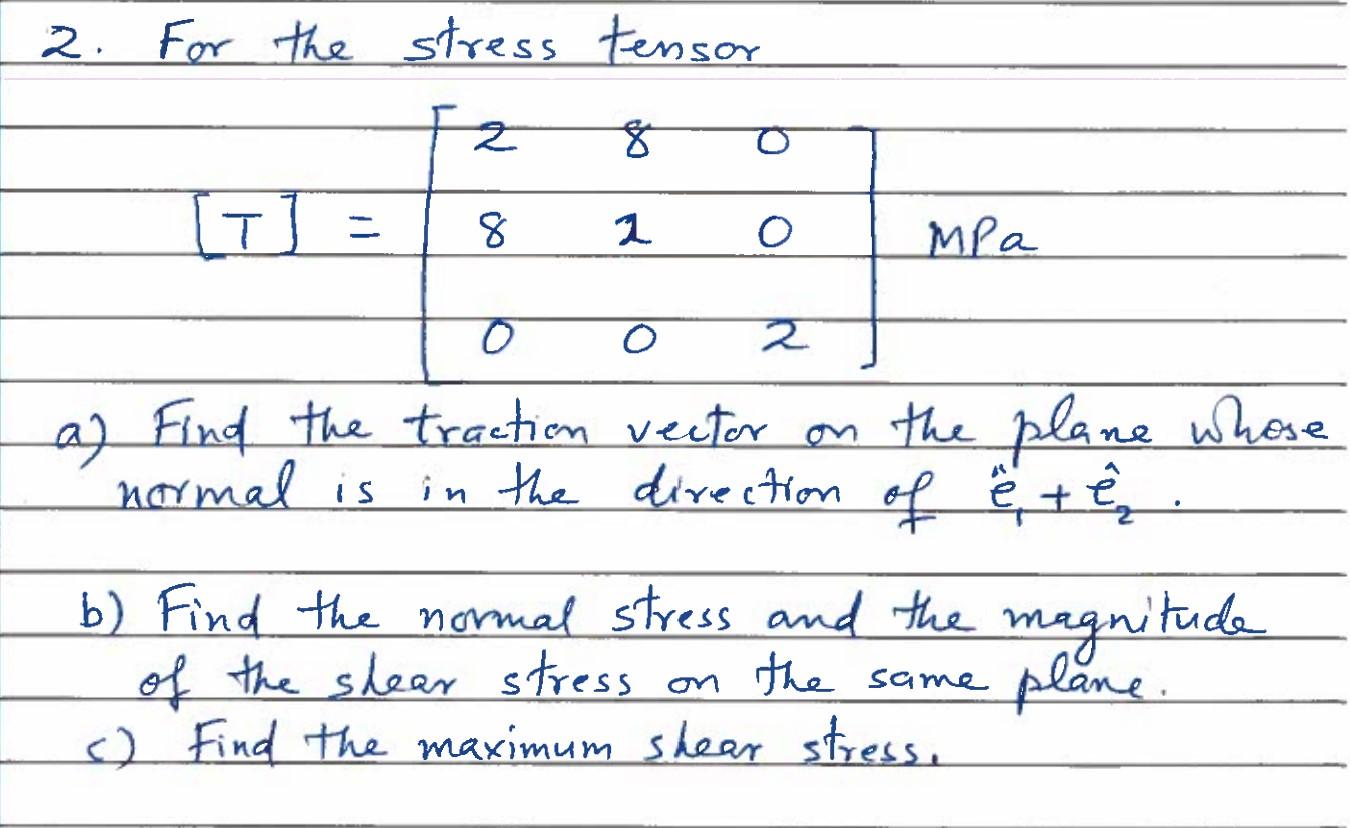 2. For the stress tensor
2 8 0
[T] = 8 2 0 MPa
0 0 2
a) Find the traction vector on the plane whose
normal is in the direction of ê₁ + ê₂ .
b) Find the normal stress and the magnitude
of the shear stress on the same plane.
c) Find the maximum shear stress.